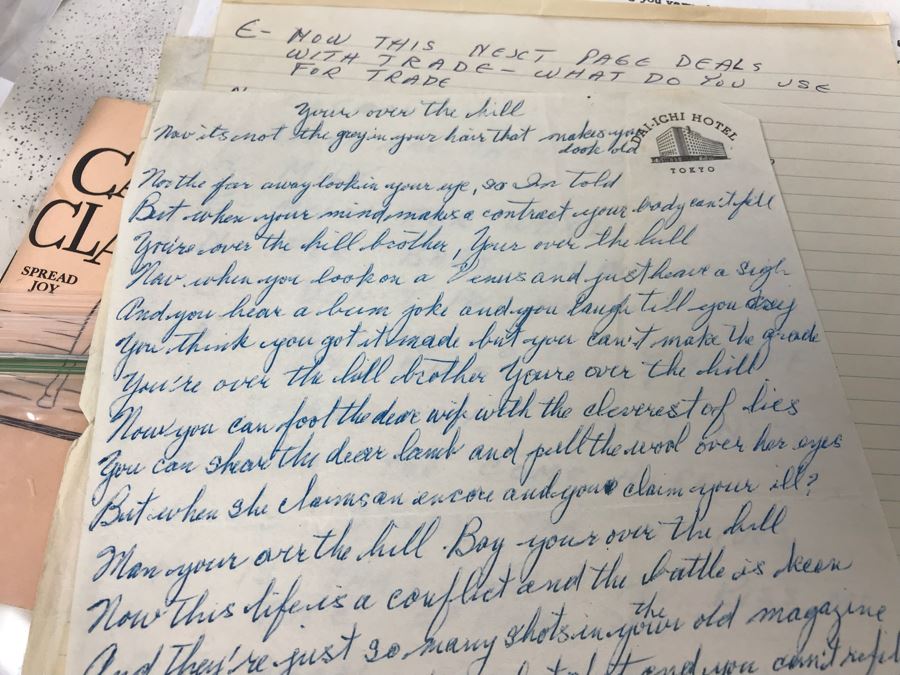 E- NOW THIS NEXT PAGE DEALS
WITH TRADE- WHAT DO YOU USE
FOR TRADE
DAI-ICHI HOTEL
TOKYO
CA
CLA
SPREAD
JOY
Your over the hill
Now its not the grey in your hair that makes you
look old
Nor the far away look in your eye, so Im told
But when your mind makes a contract your body can't fill
You're over the hill brother, Your over the hill
Now when you look on a Venus and just heave a sigh
And you hear a bum joke and you laugh till you cry
You think you got it made but you can't make the grade
You're over the hill brother Youre over the hill
Now you can fool the dear wife with the cleverest of lies
You can shear the dear lamb and pull the wool over her eyes
But when she claims an encore and you claim your ill?
Man your over the hill. Boy your over the hill
Now this life is a conflict and the battle is keen
And they're just so many shots in the old magazine
and you can't refil